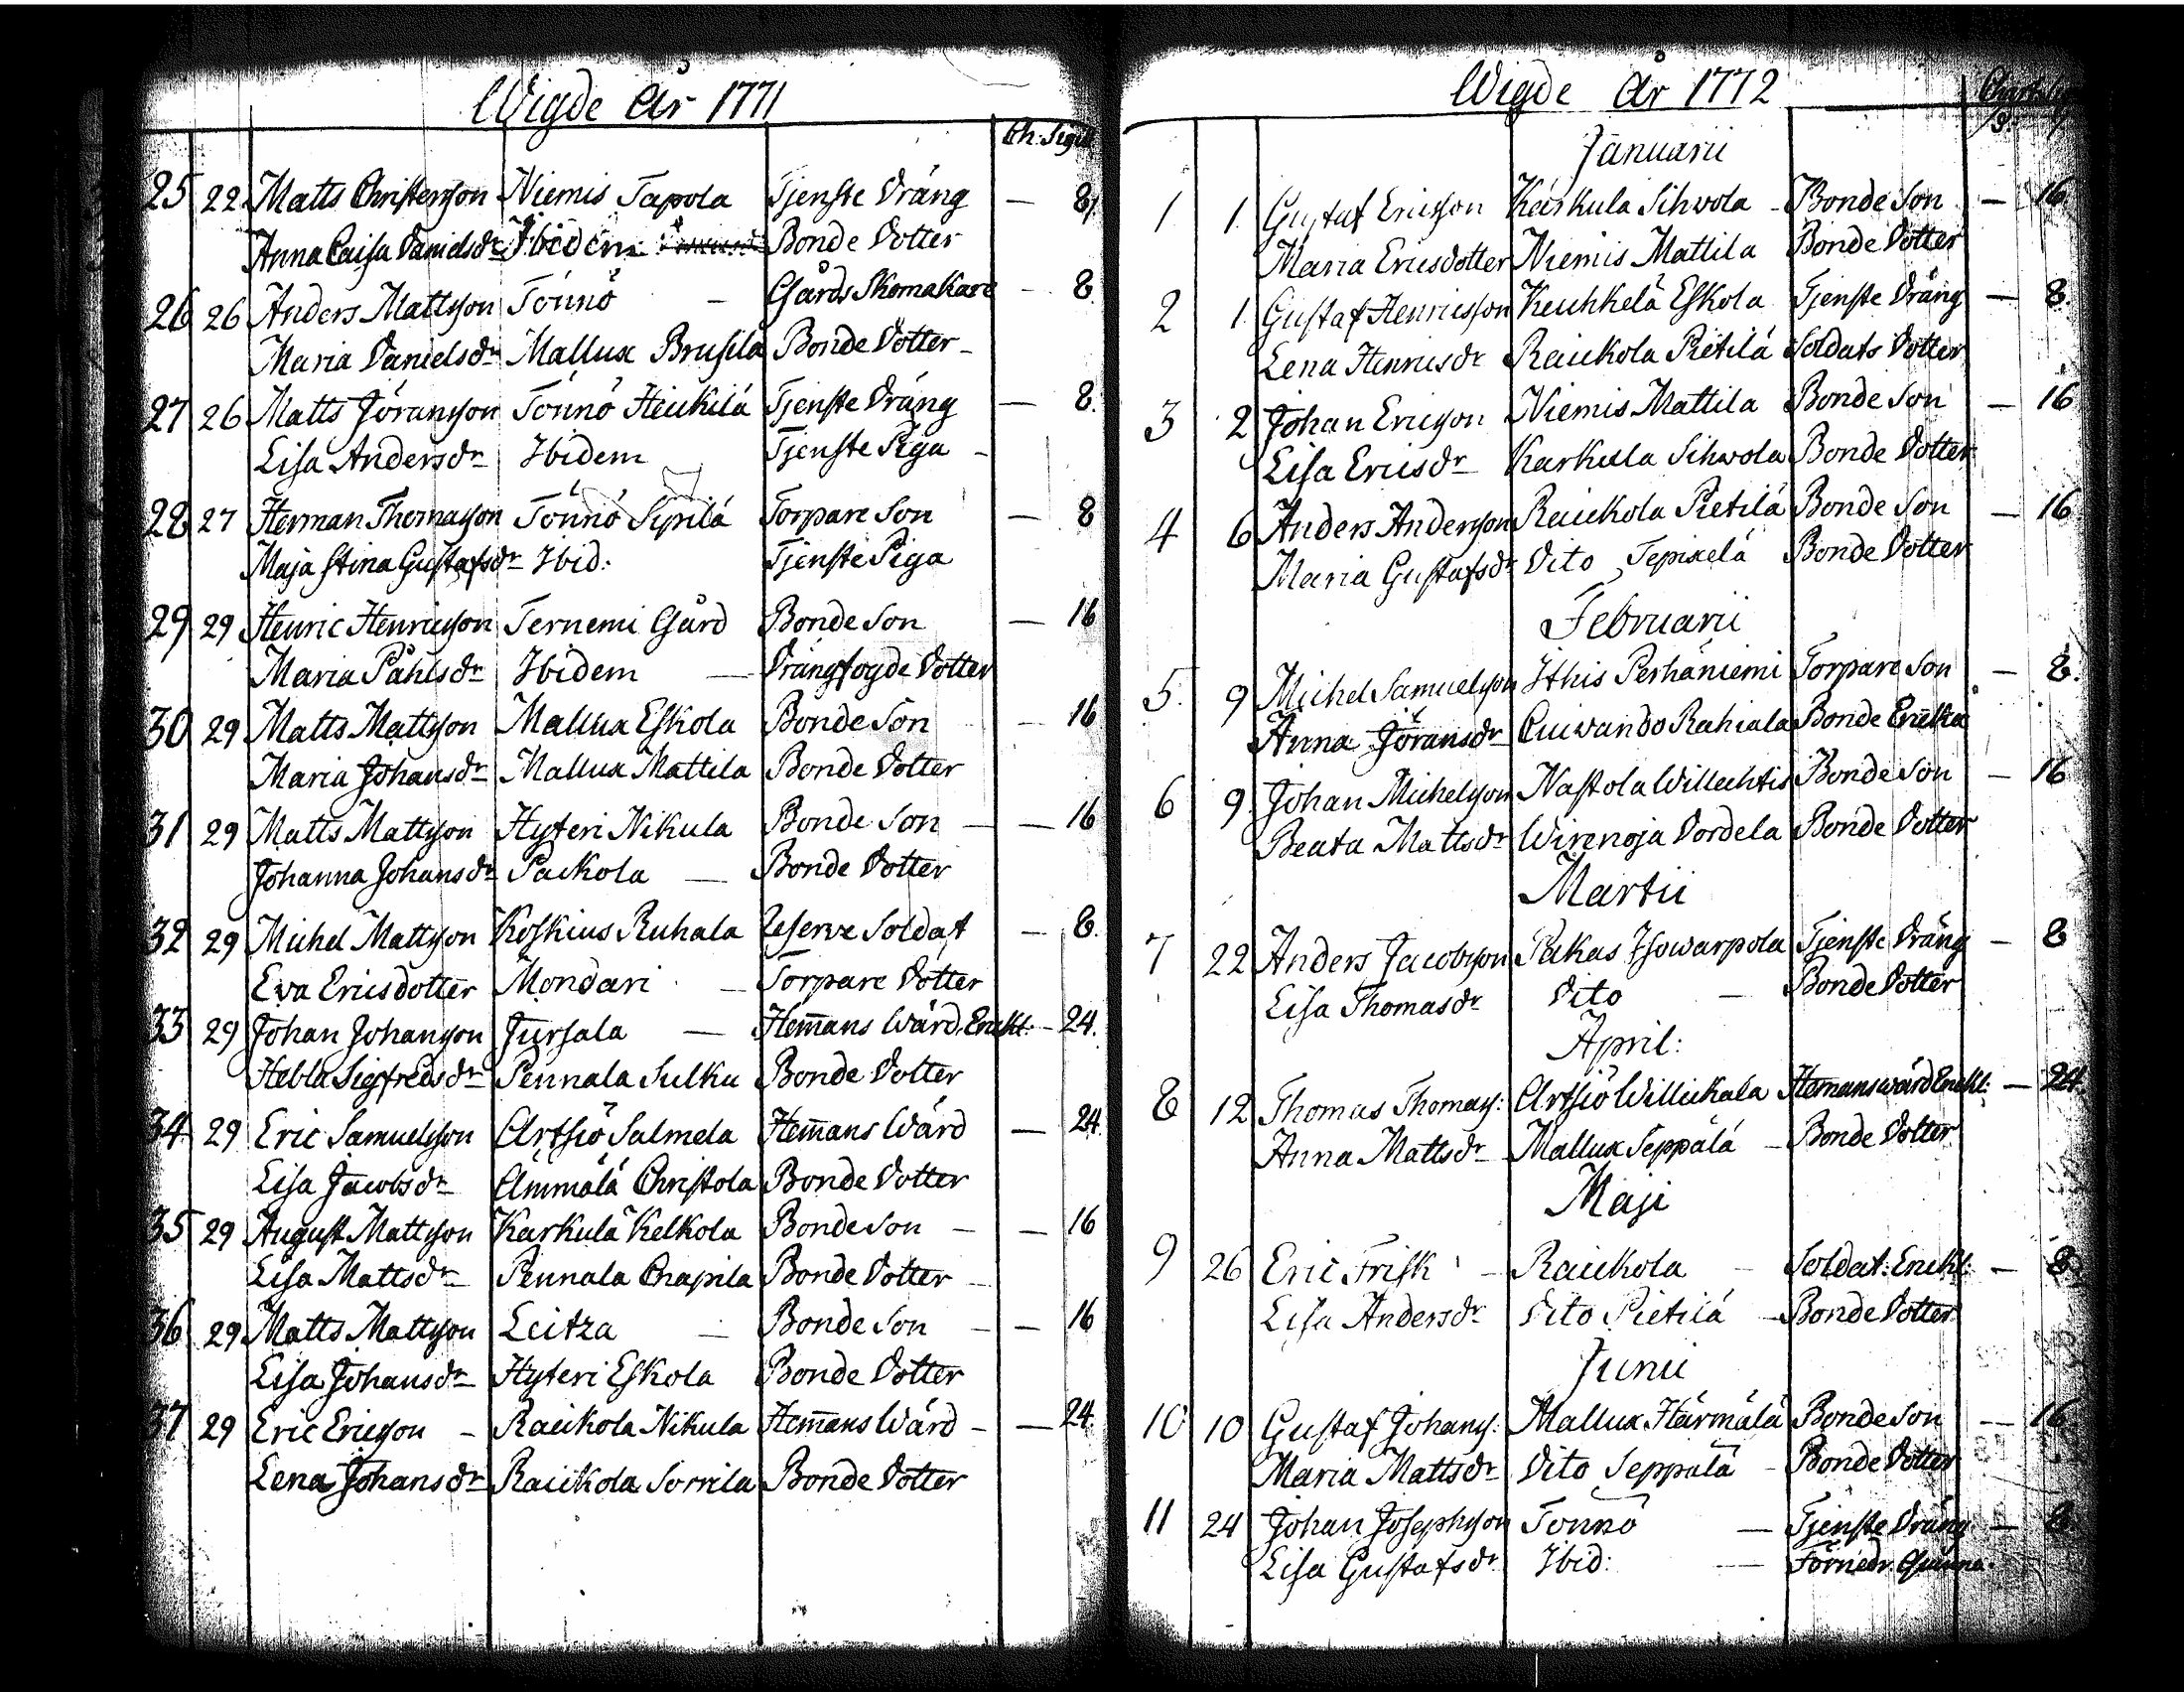 Wigde År 1771
Ch. Sigill
25 22 Matts Christersson Niemis Tapola Tjenste Dräng — 8
Anna Caisa Danielsdr Ibidem Bonde Dotter
26 26 Anders Mattsson Tönnö — Gårds Skomakare — 8
Maria Danielsdr Mallux Brusila Bonde Dotter
27 26 Matts Jöransson Tönnö Heickilä Tjenste Dräng — 8.
Lisa Andersdr Ibidem Tjenste Piga
28 27 Herman Thomasson Tönnö Sipilä Torpare Son — 8
Maja Stina Gustafsdr Ibid: Tjenste Piga
29 29 Henric Henricsson Ternemi Gård Bonde Son — 16
Maria Påhlsdr Ibidem — Drängfogde Dotter
30 29 Matts Mattsson Mallux Eskola Bonde Son — 16
Maria Johansdr Mallux Mattila Bonde Dotter
31 29 Matts Mattsson Hyteri Nikula Bonde Son — 16
Johanna Johansdr Packola — Bonde Dotter
32 29 Michel Mattsson Koskius Ruhala Reserve Soldat — 8.
Eva Ericsdotter Mondari — Torpare Dotter
33 29 Johan Johansson Jursala — Hem̄ans Wärd. Enckl: — 24.
Hebla Sigfredsdr Pennala Sulku Bonde Dotter
34 29 Eric Samuelsson Artsiö Salmela Hem̄ans Wärd — 24
Lisa Jacobsdr Ämmälä Christola Bonde Dotter
35 29 August Mattsson Karkula Kelkola Bonde Son — 16
Lisa Mattsdr Pennala Chapila Bonde Dotter
36 29 Matts Mattsson Leitza — Bonde Son — 16
Lisa Johansdr Hyteri Eskola Bonde Dotter
37 29 Eric Ericsson — Raickola Nikula Hem̄ans Wärd — 24.
Lena Johansdr Raickola Sorrila Bonde Dotter
Wigde År 1772
Januarii
1 1 Gustaf Ericsson Kärkula Sihwola Bonde Son — 16
Maria Ericsdotter Niemis Mattila Bonde Dotter
2 1 Gustaf Henricsson Keuhkelä Eskola Tjenste Dräng — 8.
Lena Henricsdr Raickola Pietilä Soldats Dotter
3 2 Johan Ericsson Niemis Mattila Bonde Son — 16
Lisa Ericsdr Karkula Sihwola Bonde Dotter
4 6 Anders Andersson Raickola Pietilä Bonde Son — 16
Maria Gustafsdr Dito Bonde Dotter
Februarii
5. 9 Michel Samuelsson Ithis Perhäniemi Torpare Son — 8.
Anna Jöransdr Cuivando Rahiala Bonde Enckia
6 9. Johan Michelsson Nastola Willechtis Bonde Son — 16
Beata Mattsdr Wirenoja Dordela Bonde Dotter
Martii
7 22 Anders Jacobsson Pakas Isowarpola Tjenste Dräng — 8
Lisa Thomasdr Dito — Bonde Dotter
April:
8 12 Thomas Thomass: Artsiö Willickala Hem̄answärd Enckl: — 24.
Anna Mattsdr Mallux Seppälä — Bonde Dotter
Maji
9 26 Eric Frisk — Raickola — Soldat: Enckl: — 8
Lisa Andersdr Dito Pietilä — Bonde Dotter
Junii
10 10 Gustaf Johans: Mallux Härmälä Bonde Son — 16
Maria Mattsdr Dito Seppälä — Bonde Dotter
11 24 Johan Josephsson Tönnö — Tjenste Dräng — 8.
Lisa Gustafsdr Ibid: —